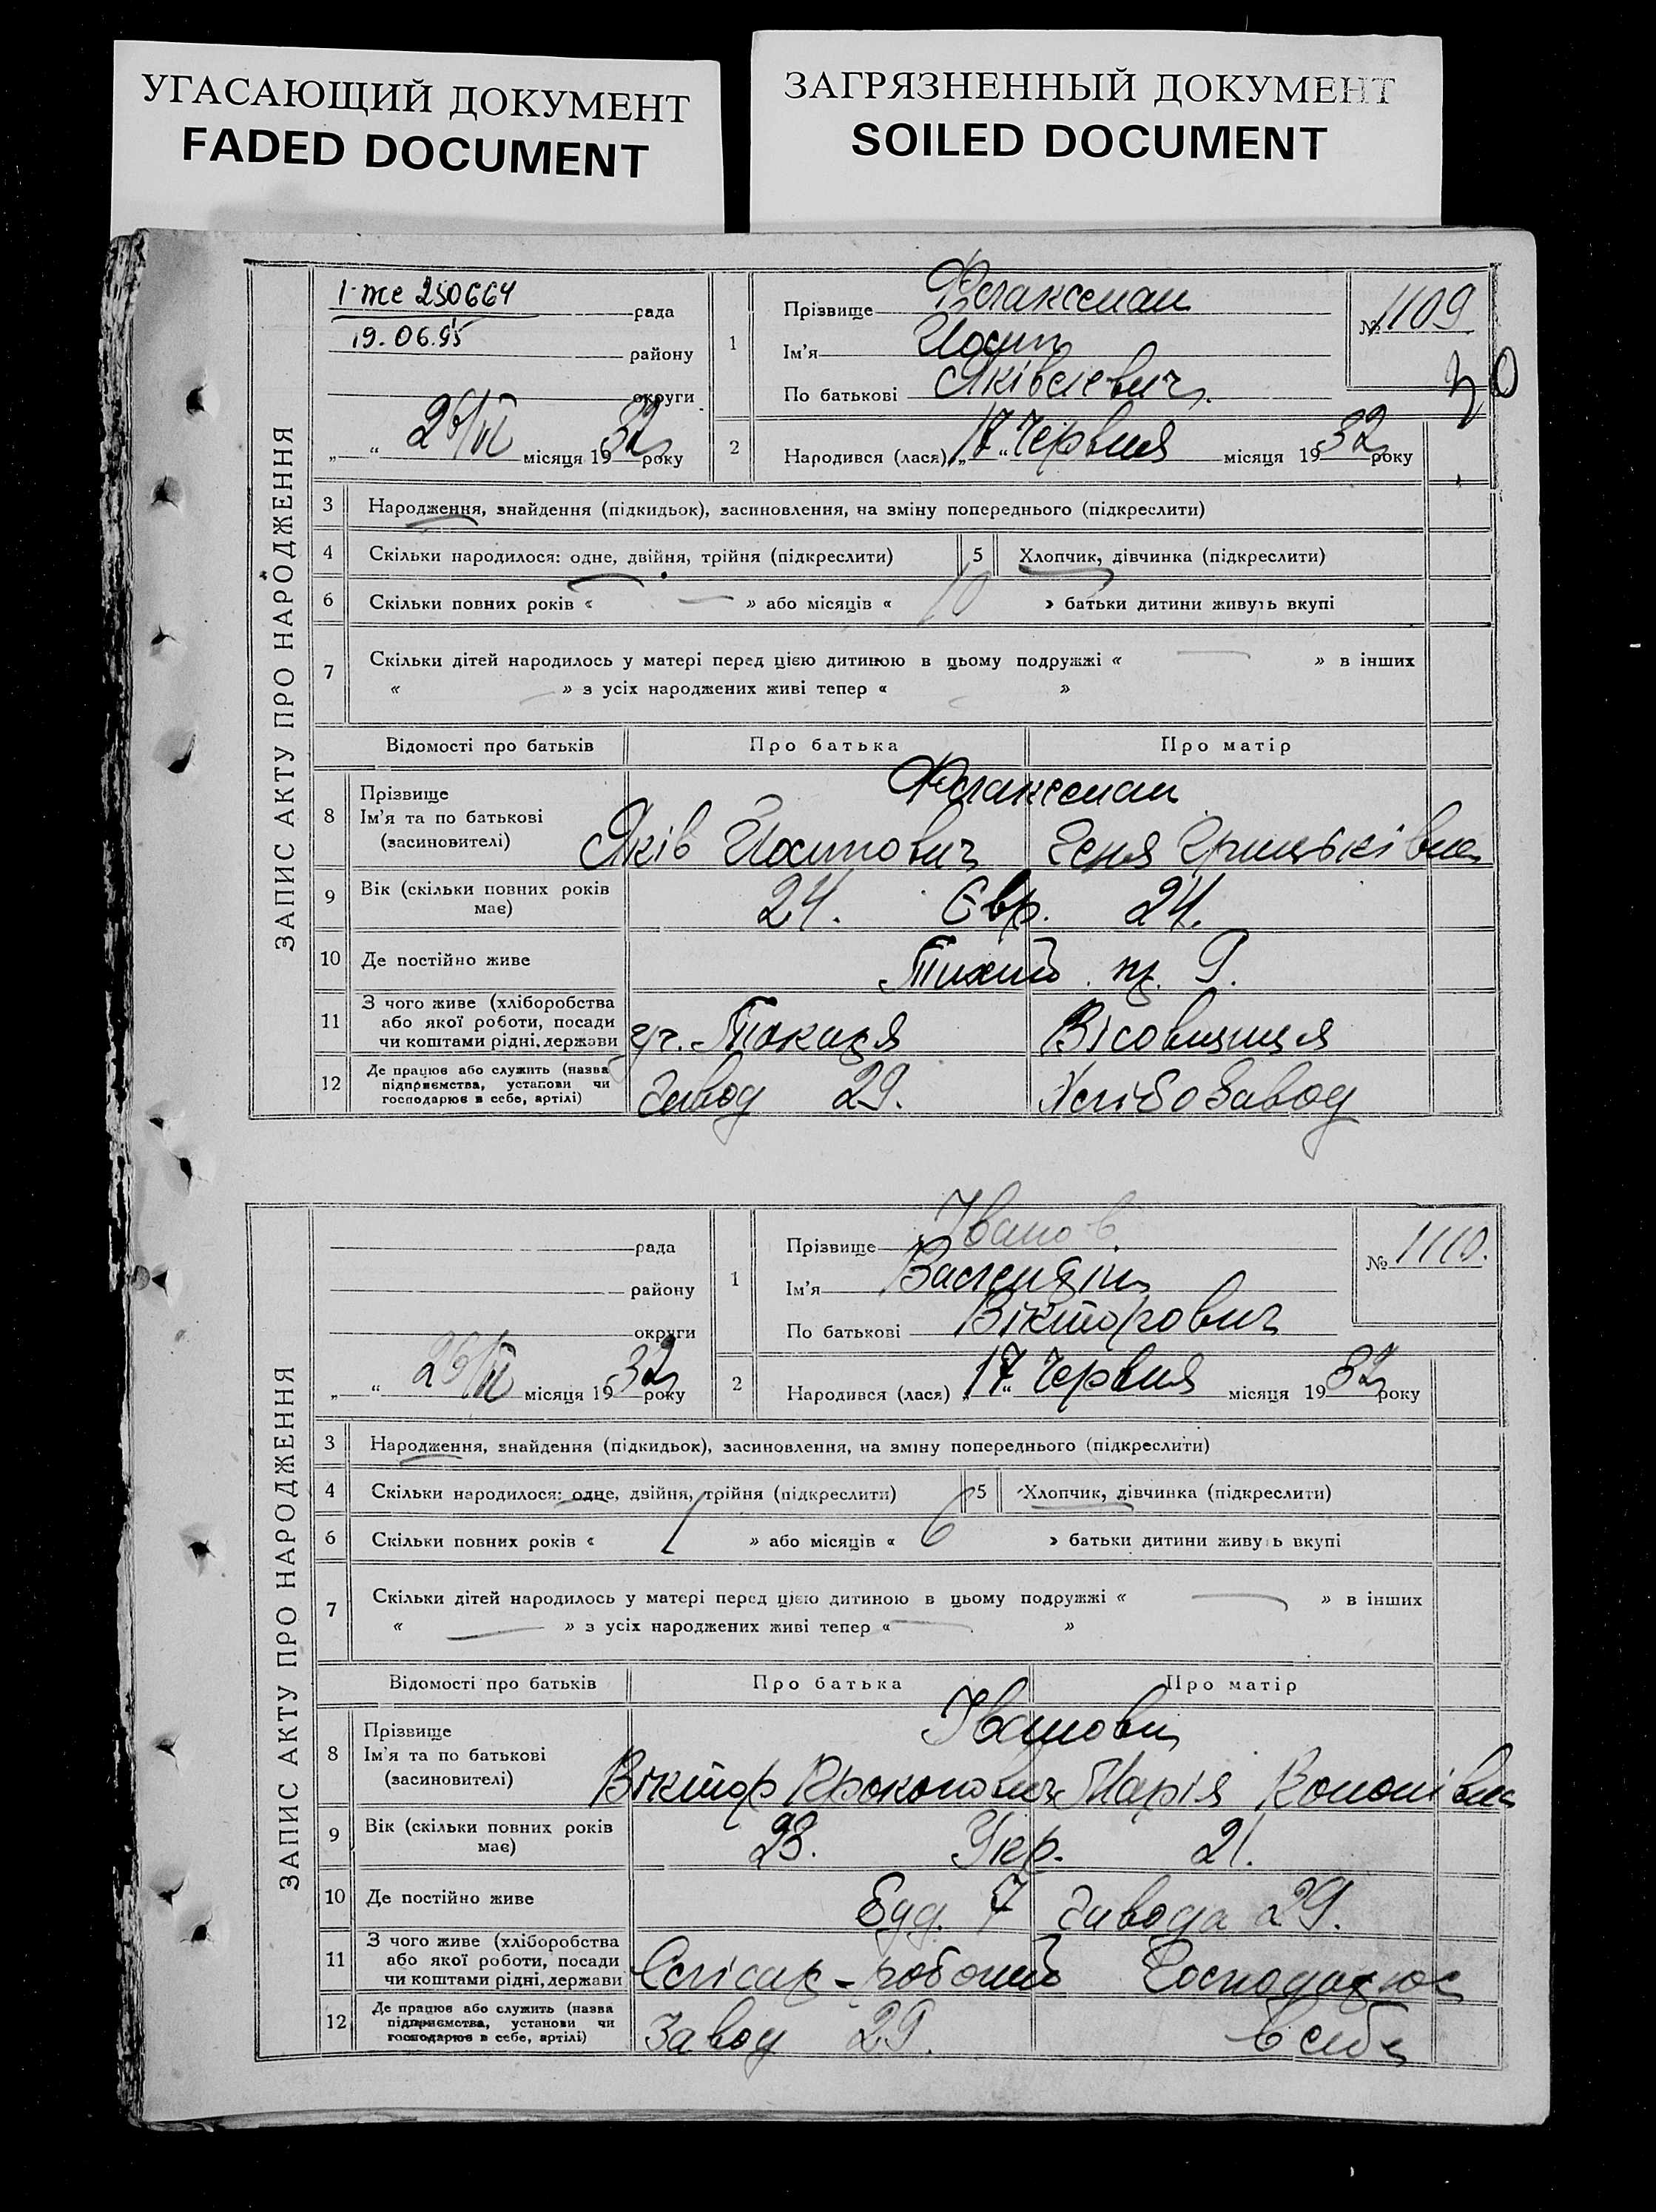 УГАСАЮЩИЙ ДОКУМЕНТ
FADED DOCUMENT
ЗАГРЯЗНЕННЫЙ ДОКУМЕНТ
SOILED DOCUMENT
ЗАПИС АКТУ ПРО НАРОДЖЕННЯ
І-же 250664 рада
19.06.95 району
округи
„ “ 26/VI місяця 1932 року
1
Прізвище Флаксман
Ім'я Йосип
По батькові Яківлевич.
№ 1109
30
2 Народився (лася) „17“ Червня місяця 1932 року
3 Народження, знайдення (підкидьок), засиновлення, на зміну попереднього (підкреслити)
4 Скільки народилося: одне, двійня, трійня (підкреслити) 5 Хлопчик, дівчинка (підкреслити)
6 Скільки повних років « — » або місяців « 10 » батьки дитини живуть вкупі
7 Скільки дітей народилось у матері перед цією дитиною в цьому подружжі « — » в інших
« — » з усіх народжених живі тепер « — »
Відомості про батьків Про батька Про матір
8 Прізвище Флаксман
Ім'я та по батькові
(засиновителі) Яків Йосипович Геня Грицьківна
9 Вік (скільки повних років має) 24. Євр. 24.
10 Де постійно живе Тихий п. 9.
11 З чого живе (хліборобства
або якої роботи, посади
чи коштами рідні, держави уч. Токаря Вісовщиця
12 Де працює або служить (назва
підприємства, установи чи
господарює в себе, артілі) Завод 29. Хлібозавод
ЗАПИС АКТУ ПРО НАРОДЖЕННЯ
рада
району
округи
„ “ 26/VI місяця 1932 року
1
Прізвище Іванов
Ім'я Валентін
По батькові Вікторович
№ 1110.
2 Народився (лася) „17“ Червня місяця 1932 року
3 Народження, знайдення (підкидьок), засиновлення, на зміну попереднього (підкреслити)
4 Скільки народилося: одне, двійня, трійня (підкреслити) 5 Хлопчик, дівчинка (підкреслити)
6 Скільки повних років « 1 » або місяців « 6 » батьки дитини живуть вкупі
7 Скільки дітей народилось у матері перед цією дитиною в цьому подружжі « — » в інших
« — » з усіх народжених живі тепер « — »
Відомості про батьків Про батька Про матір
8 Прізвище Іванови
Ім'я та по батькові
(засиновителі) Віктор Прокопович Марія Кононівна
9 Вік (скільки повних років має) 23. Укр. 21.
10 Де постійно живе Буд. 7 Завода 29.
11 З чого живе (хліборобства
або якої роботи, посади
чи коштами рідні, держави Слісар-робочий Господарює
12 Де працює або служить (назва
підприємства, установи чи
господарює в себе, артілі) Завод 29. в себе